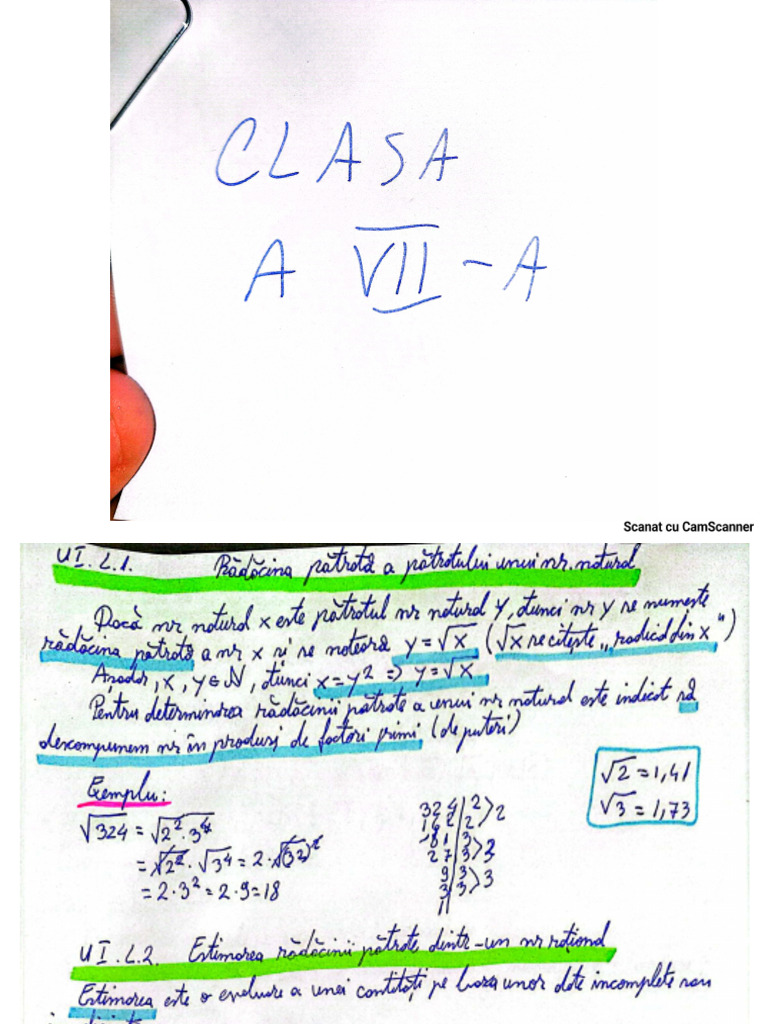 CLASA
A VII-A
Scanat cu CamScanner
UI.L.1. Rădăcina pătrată a pătratului unui nr. natural
Dacă nr natural x este pătratul nr natural y, atunci nr y se numește
rădăcina pătrată a nr x și se notează y=√x (√x se citește „radical din x")
Așadar, x, y∈N, atunci x=y² => y=√x
Pentru determinarea rădăcinii pătrate a unui nr natural este indicat să
descompunem nr în produs de factori primi (de puteri)
Exemplu:
√324 = √2²·3⁴
= √2² · √3⁴ = 2·√(3²)²
= 2·3² = 2·9 = 18
324|2
162|2 >2
81|3
27|3 >3
9|3
3|3 >3
1
√2 = 1,41
√3 = 1,73
UI.L.2. Estimarea rădăcinii pătrate dintr-un nr rațional
Estimarea este o evaluare a unei cantități pe baza unor date incomplete sau